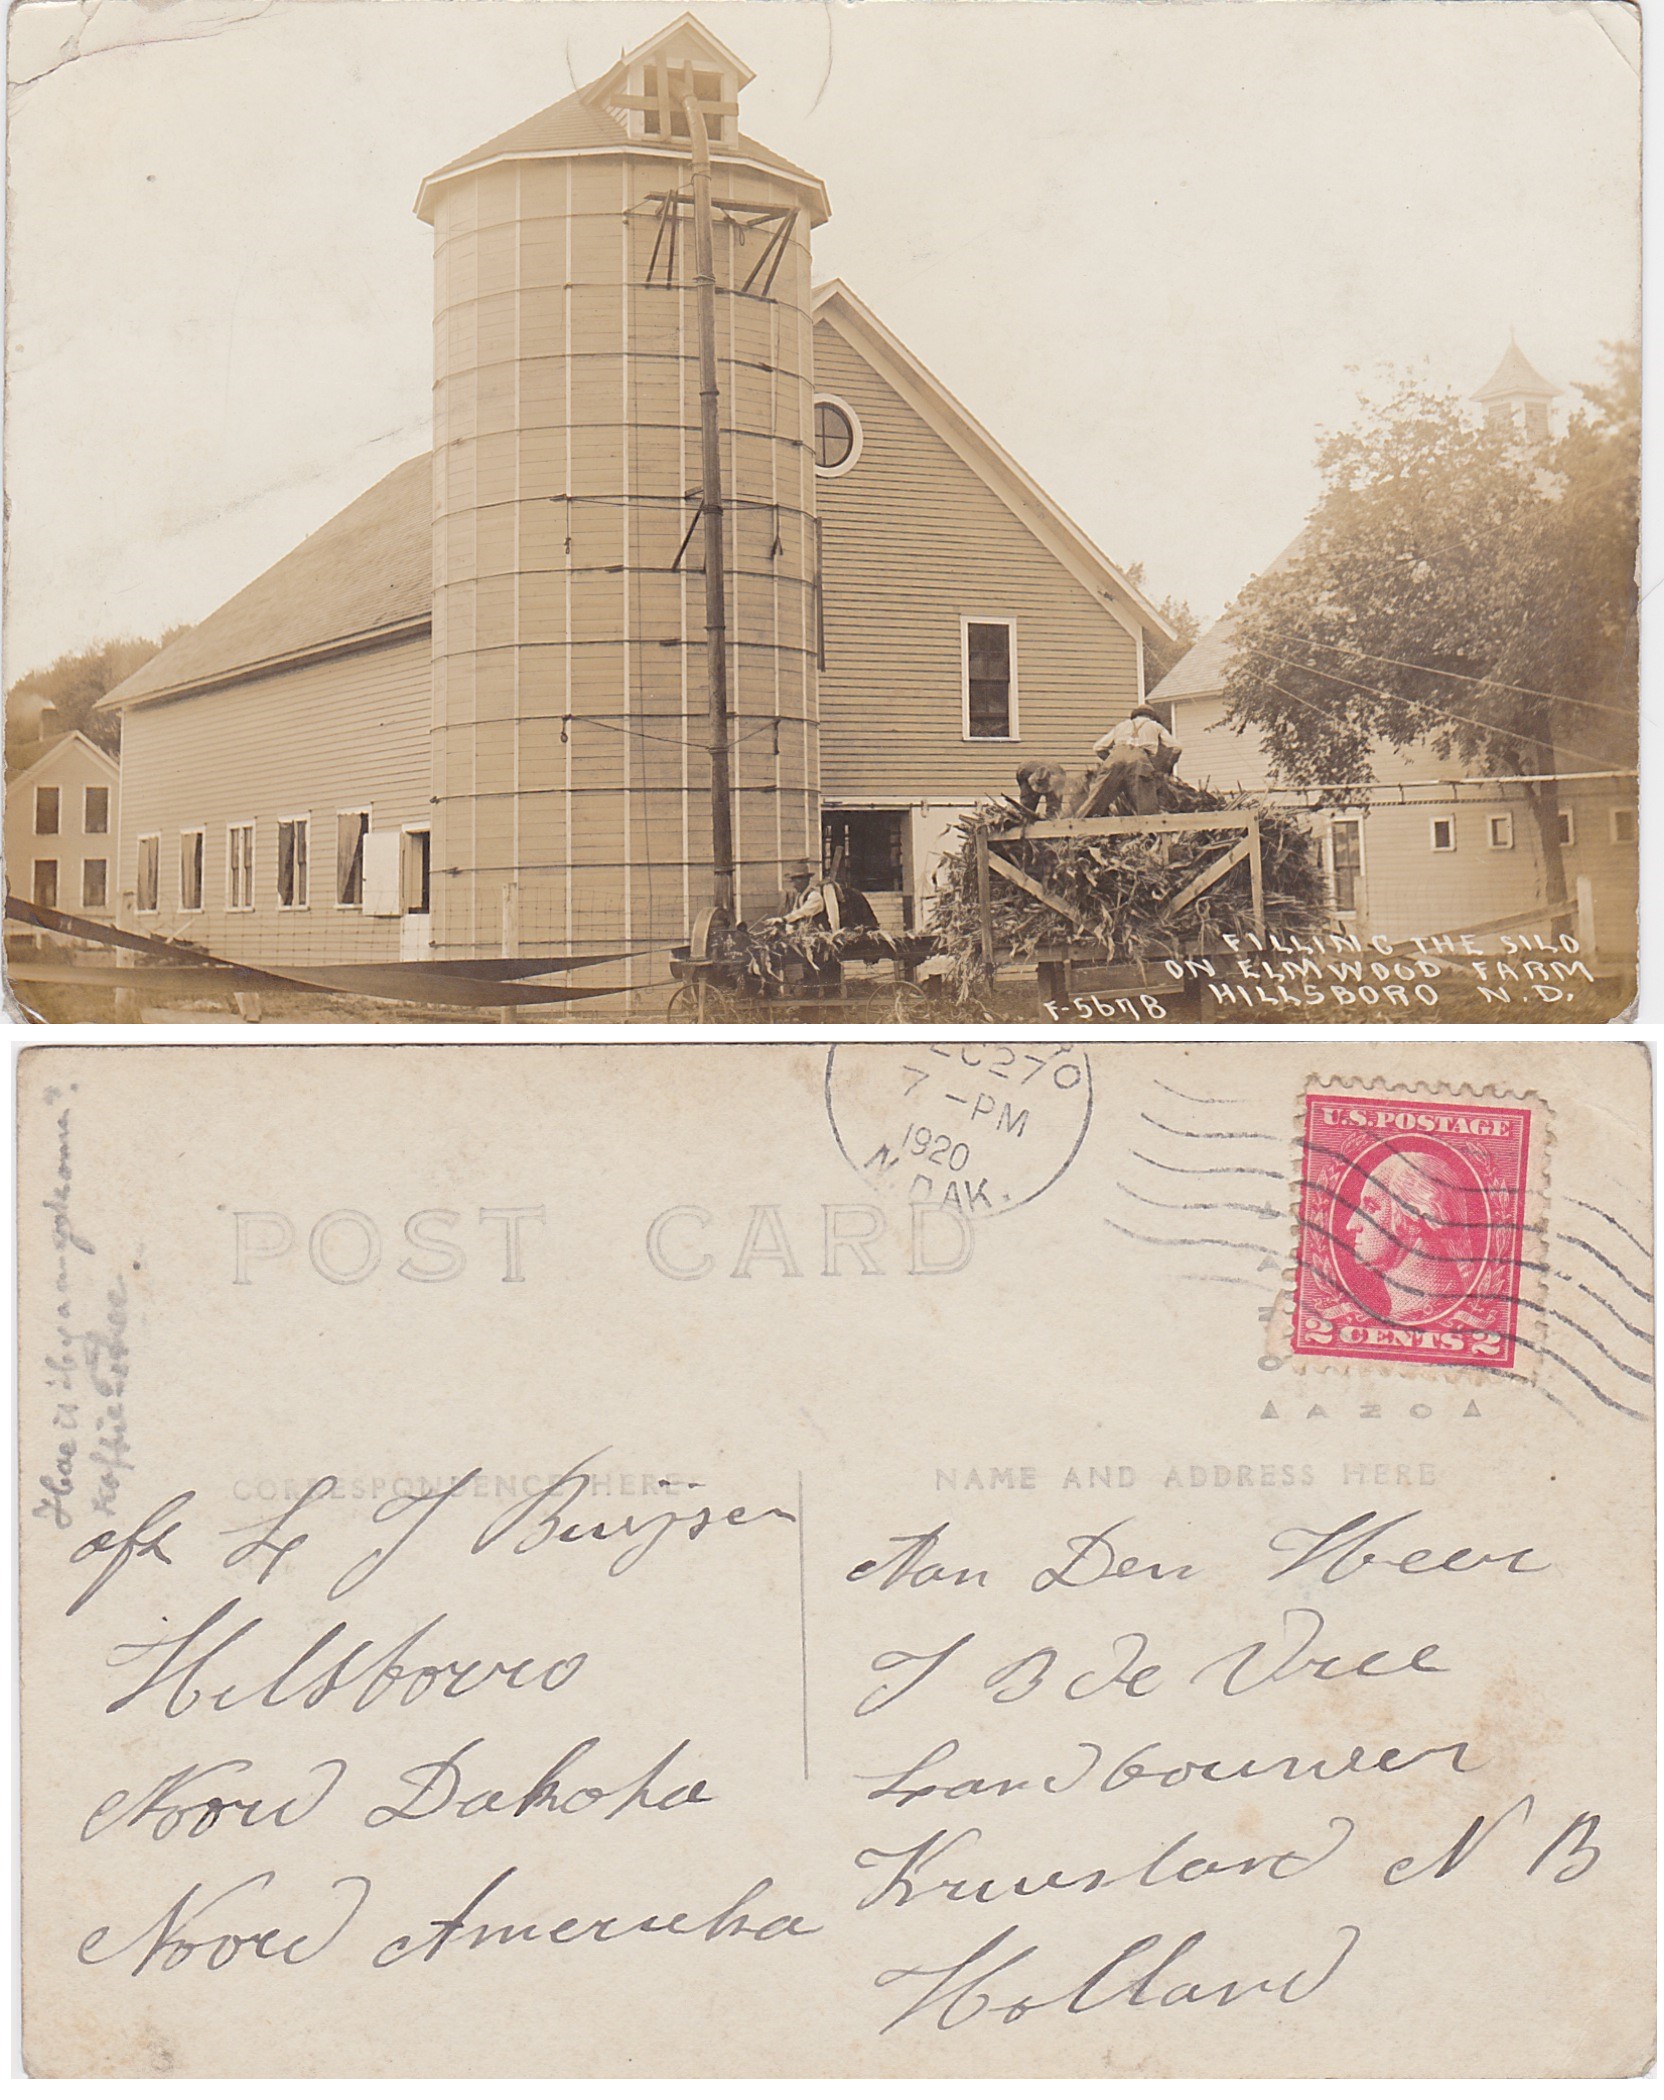 FILLING THE SILO
ON ELMWOOD FARM
HILLSBORO N.D.
F-5678
EC270
7-PM
1920
N.DAK.
U.S.POSTAGE
2 CENTS 2
POST CARD
AZO
AZO
CORRESPONDENCE HERE
NAME AND ADDRESS HERE
Hoe is
afz L J Buijsen
Hilsborro
Noord Dakota
Noord Amerieka
Aan Den Heer
J B de Vree
Landbouwer
Kruisland N B
Holland